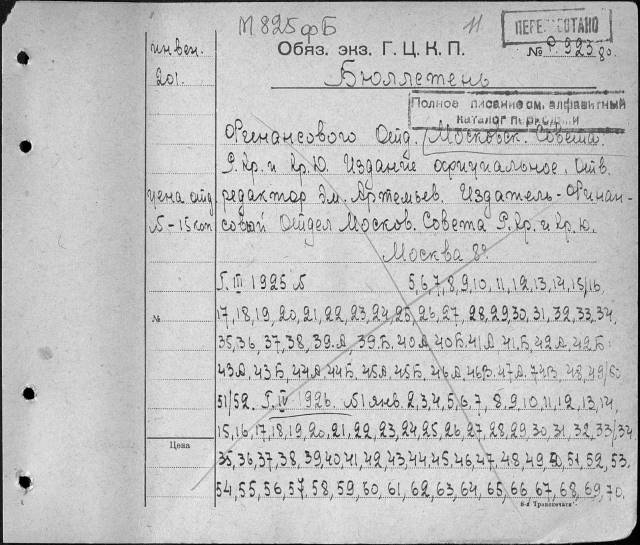 М 825 фБ
11
ПЕРЕ
Обяз. экз. Г. Ц. К. П.
№ Ф. 923 80.
инвен. Бюллетень
201.
Полное писание см. алфавитный
каталог
Финансового Отд. Московск. Совета.
Р. Кр. и Кр. Д. Издание официальное. Отв.
цена отд. редактор Эм. Артемьев. Издатель - Финан-
№ - 15 коп совый Отдел Москов. Совета Р. Кр. и Кр. Д.
Москва 8°.
Г. III 1925 № 5, 6, 7, 8, 9, 10, 11, 12, 13, 14, 15/16,
№ 17, 18, 19, 20, 21, 22, 23, 24, 25, 26, 27, 28, 29, 30, 31, 32, 33, 34.
35, 36, 37, 38, 39.А, 39.Б. 40А. 40Б. 41А. 41Б. 42А. 42Б.
43А. 43Б, 44А. 44Б. 45А. 45Б. 46А. 46Б. 47А. 74Б. 48, 49/50
51/52. Г. IV 1926. №1 янв. 2, 3, 4, 5, 6, 7, 8, 9, 10, 11, 12, 13, 14,
15, 16, 17, 18, 19, 20, 21, 22, 23, 24, 25, 26, 27, 28, 29, 30, 31, 32, 33/34
Цена 35, 36, 37, 38, 39, 40, 41, 42, 43, 44, 45, 46, 47, 48, 49, 50, 51, 52, 53.
54, 55, 56, 57, 58, 59, 60, 61, 62, 63, 64, 65, 66, 67, 68, 69, 70.